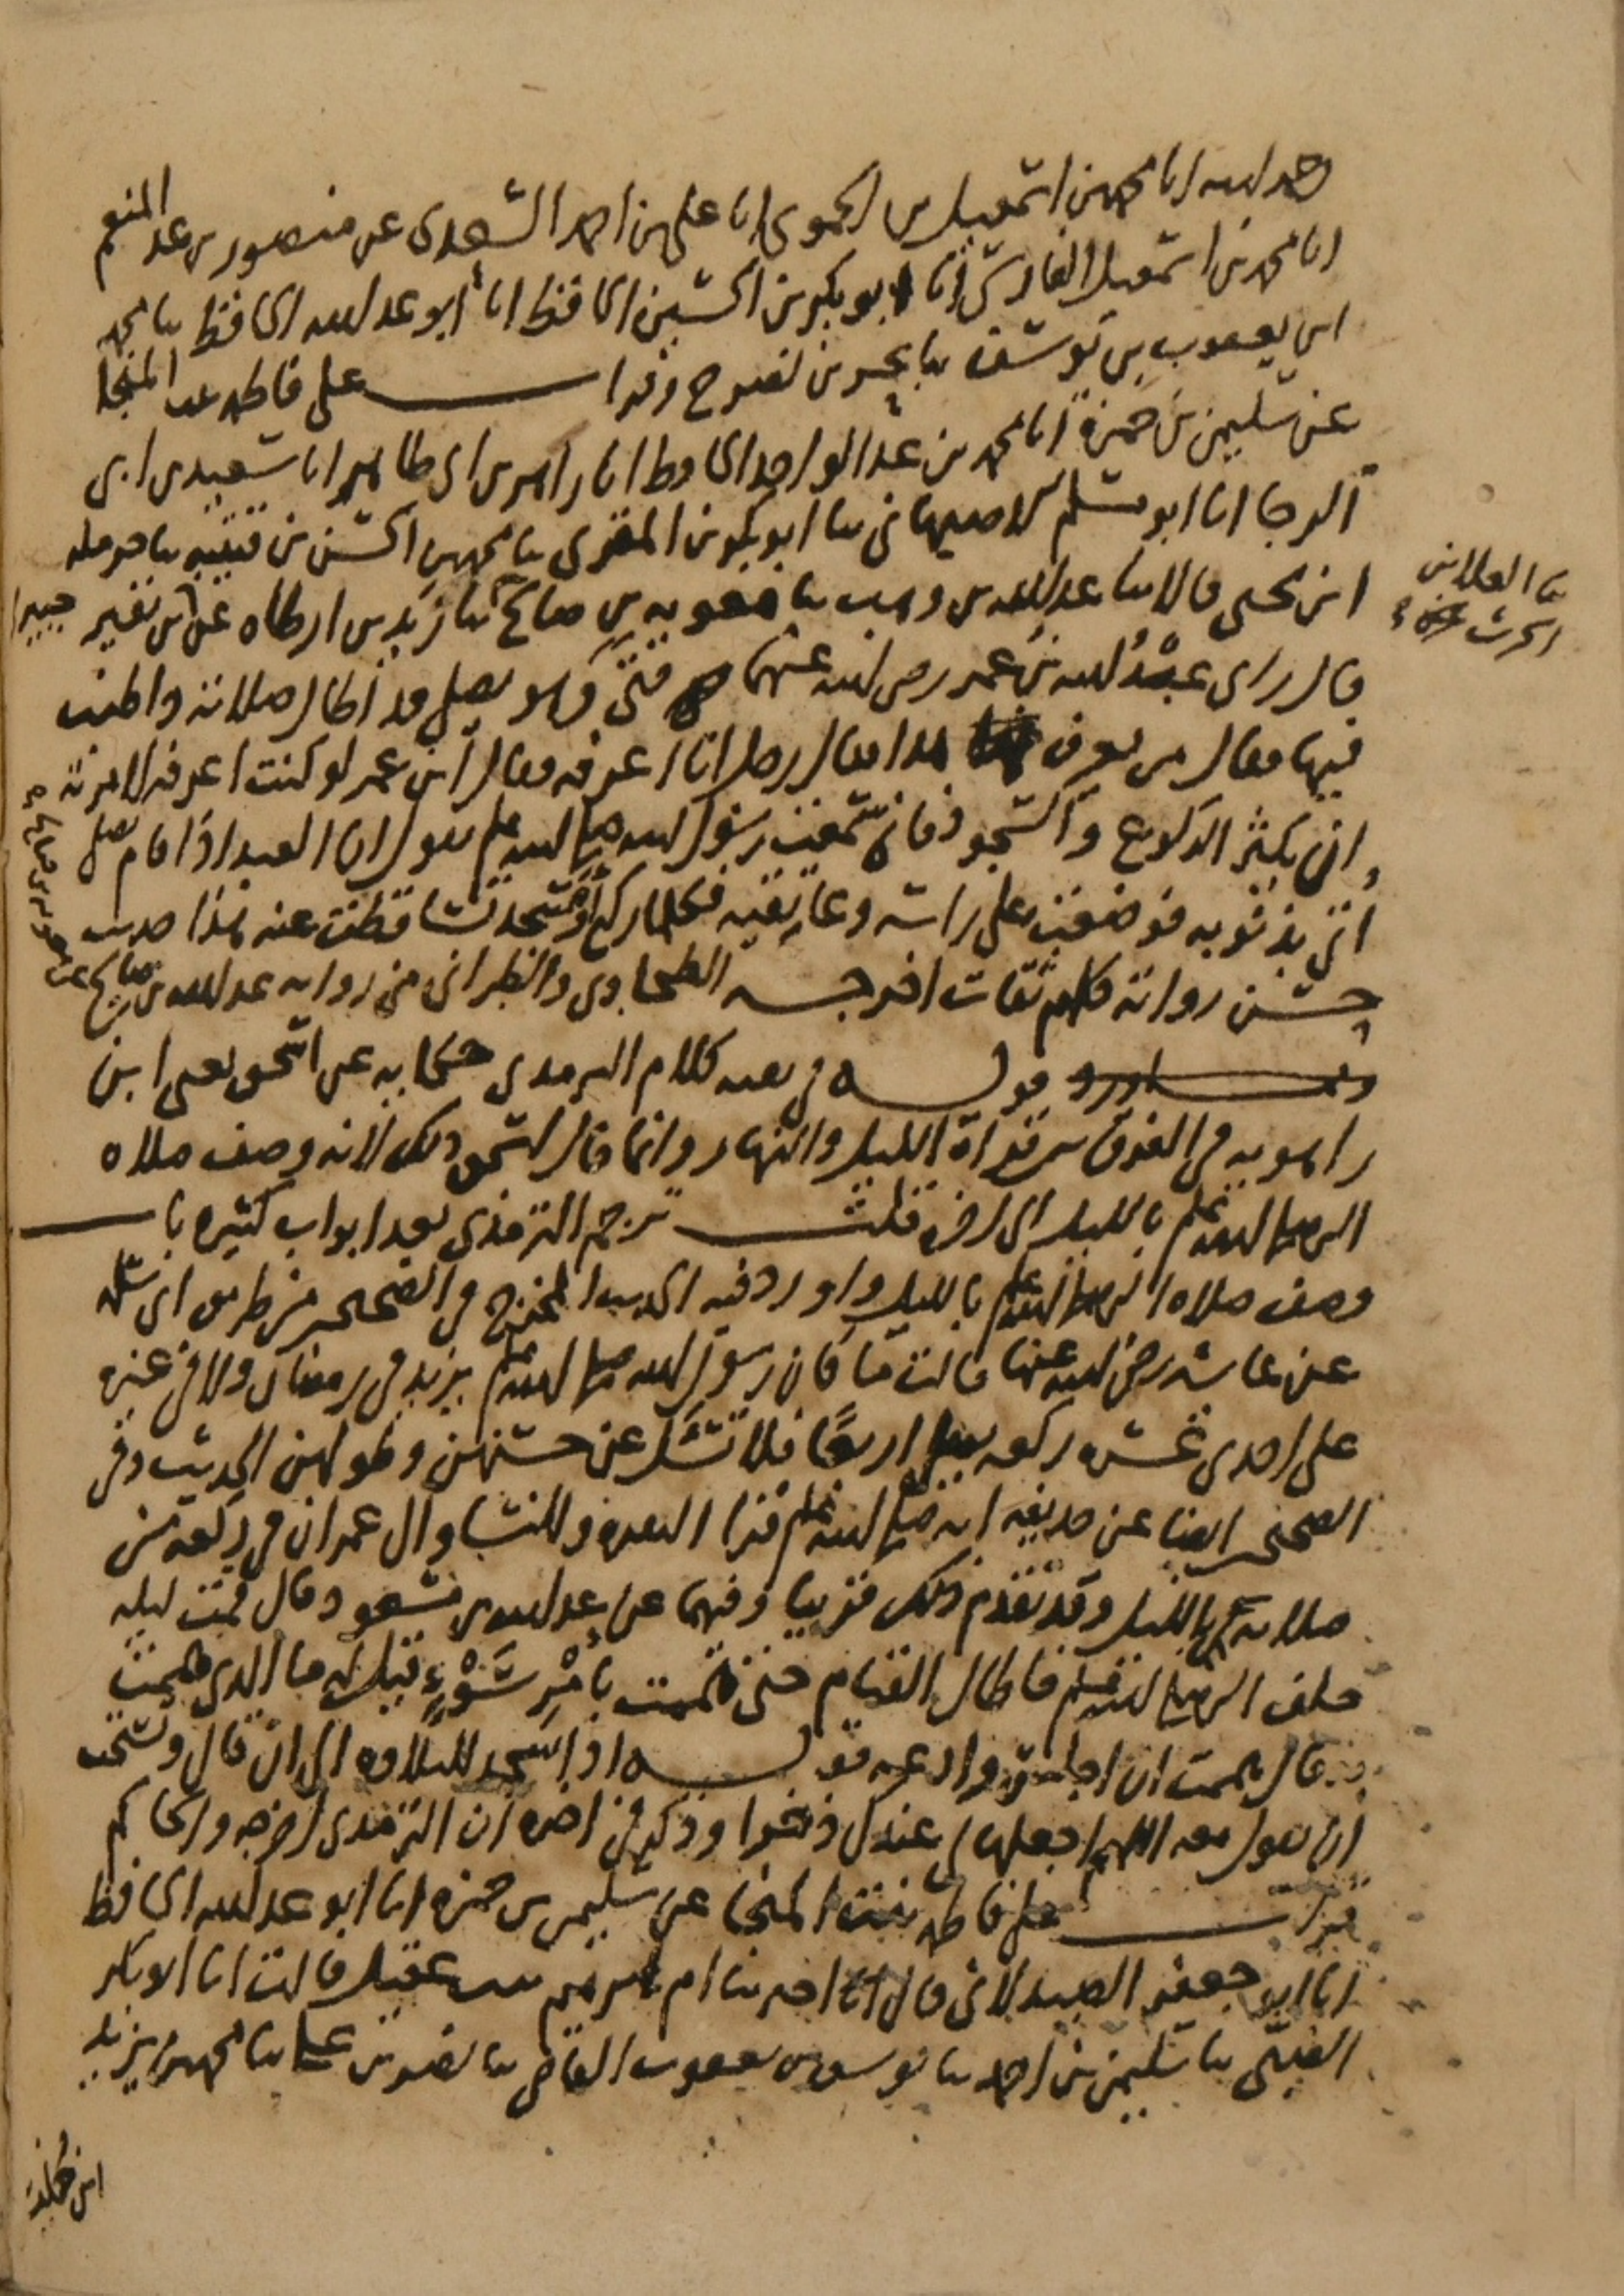 رحمه الله انا محمد بن اسمعيل بن الحموي انا علي بن احمد السعدي عن منصور بن عبد المنعم
انا محمد بن اسمعيل الفارسي انا ابو بكر بن الحسين الحافظ انا ابو عبد الله الحافظ ثنا محمد
ابن يعقوب بن يوسف ثنا بحر بن نصر ح وقرات على فاطمة بنت المنجا
عن سليمن بن حمزة انا محمد بن عبد الواحد الحافظ انا زاهر بن ابي طاهر انا سعيد بن ابي
الرجا انا ابو مسلم الاصبهاني ثنا ابو بكر بن المقرئ ثنا محمد بن الحسن بن قتيبة ثنا حرملة
ابن يحيى قالا ثنا عبد الله بن وهب ثنا معوية بن صالح
ثنا العلاء بن
الحرث
عن زيد بن ارطاه عن جبير بن نفير
قال راى عبد الله بن عمر رضي الله عنهما فتى وهو يصلي قد اطال صلاته واطنب
فيها فقال من يعرف هذا فقال رجل انا اعرفه فقال ابن عمر لو كنت اعرفه لامرته
ان يكثر الركوع والسجود فاني سمعت رسول الله صلى الله عليه وسلم يقول ان العبد اذا قام يصلي
اتي بذنوبه فوضعت على راسه وعاتقيه فكلما ركع او سجد تساقطت عنه هذا حديث
حسن رواته كلهم ثقات اخرجه الطحاوي والطبراني من رواية عبد الله بن صالح عن معوية بن صالح
قوله في بقية كلام الترمذي حكاية عن اسحق يعني ابن
راهويه في الفرق بين قراة الليل والنهار وانما قال اسحق ذلك لانه وصف صلاة
النبي صلى الله عليه وسلم بالليل الى اخره قلت ترجم الترمذي بعد ابواب كثيرة باب
وصف صلاة النبي صلى الله عليه وسلم بالليل واورد فيه الحديث المخرج في الصحيحين من طريق ابي سلمة
عن عائشة رضي الله عنها قالت ما كان رسول الله صلى الله عليه وسلم يزيد في رمضان ولا في غيره
على احدى عشرة ركعة يصلي اربعا فلا تسئل عن حسنهن وطولهن الحديث وفي
الصحيح ايضا عن حذيفة انه صلى الله عليه وسلم قرا البقرة والنسا وال عمران في ركعة من
صلاته بالليل وقد تقدم ذلك قريبا وفيهما عن عبد الله بن مسعود قال قمت ليلة
خلف النبي صلى الله عليه وسلم فاطال القيام حتى هممت بامر سوء قيل له ما الذي هممت
قال هممت ان اجلس وادعه قوله اذا سجد للتلاوة الى ان قال ويستحب
ان يقول معه اللهم اجعلها لي عندك ذخرا وذكر في اخره ان الترمذي اخرجه والحاكم
قرات على فاطمة بنت المنجا عن سليمن بن حمزة انا ابو عبد الله الحافظ
انا ابو جعفر الصيدلاني قال اخبرتنا ام ابرهيم بنت عقيل قالت انا ابو بكر
الضبي ثنا سليمن بن احمد ثنا يوسف بن يعقوب القاضي ثنا نصر بن علي ثنا محمد بن يزيد